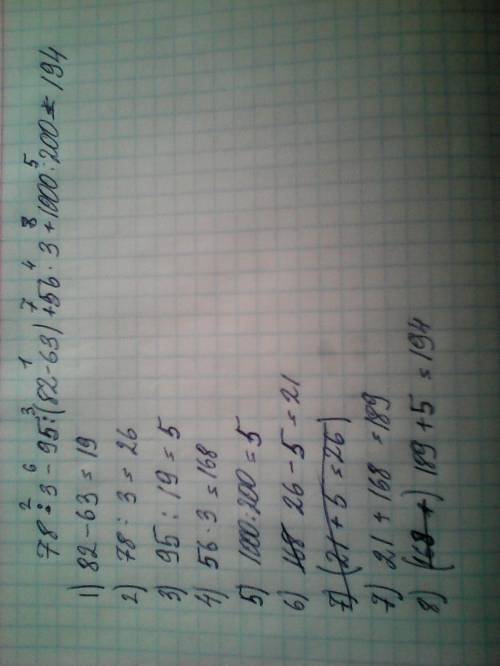 78 : 3 - 95 : (82-63) + 56 · 3 + 1000 : 200 = 194
1) 82-63 = 19
2) 78 : 3 = 26
3) 95 : 19 = 5
4) 56 · 3 = 168
5) 1000:200 = 5
6) 168 26-5 = 21
7) (21 + 5 = 26)
7) 21 + 168 = 189
8) (168 +) 189 + 5 = 194